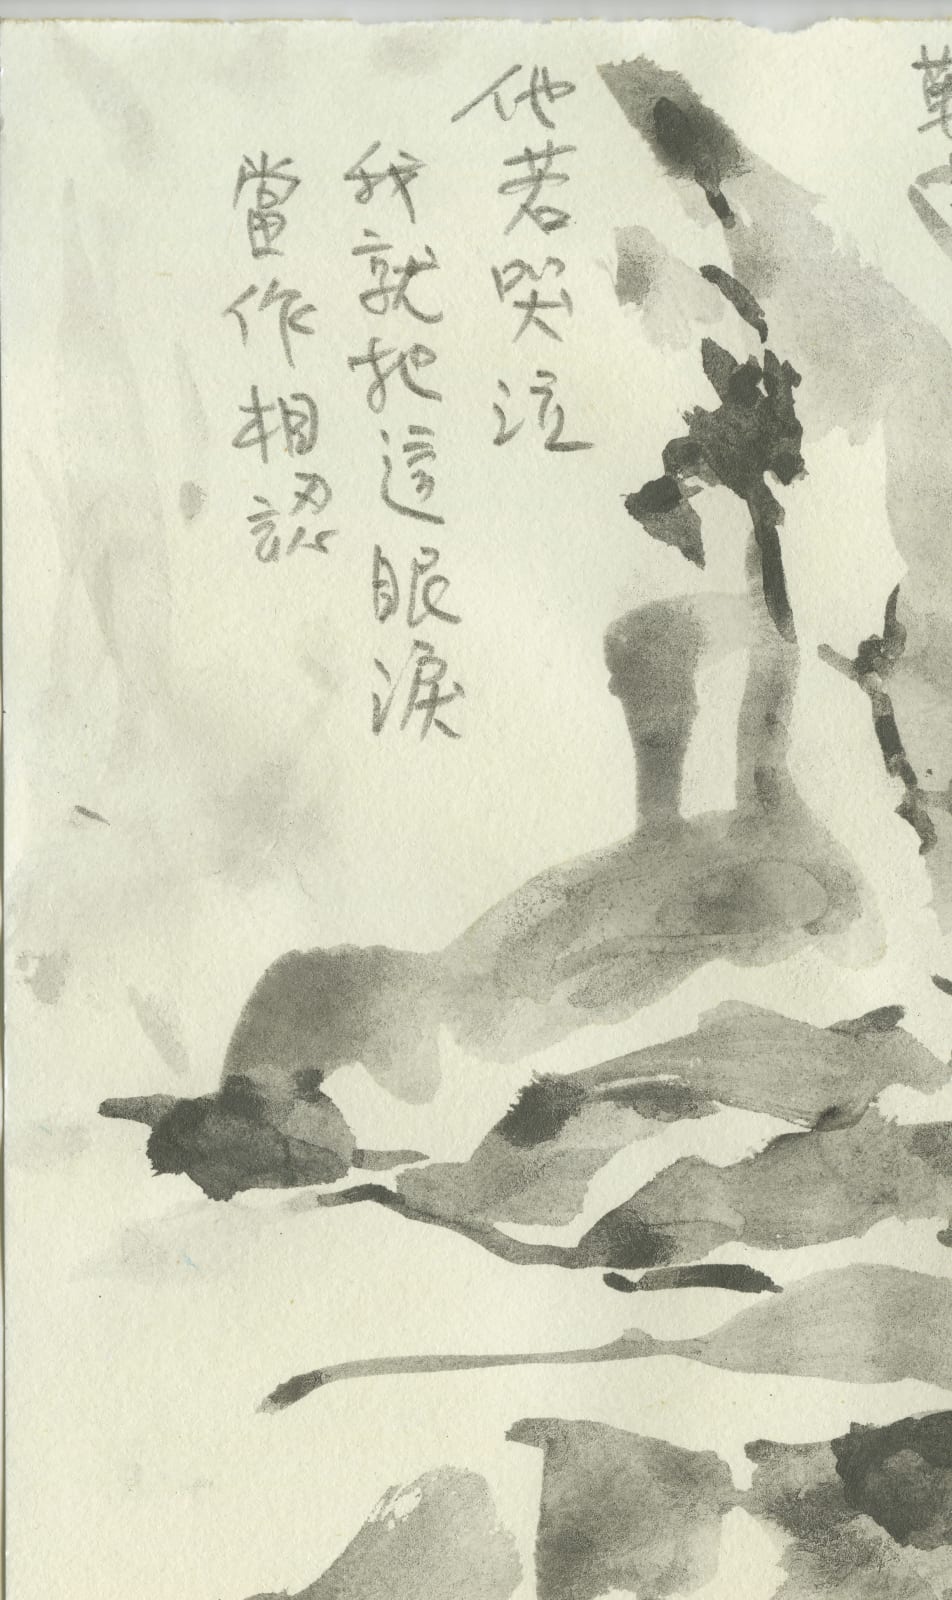 他若哭泣
我就把這眼淚
當作相認